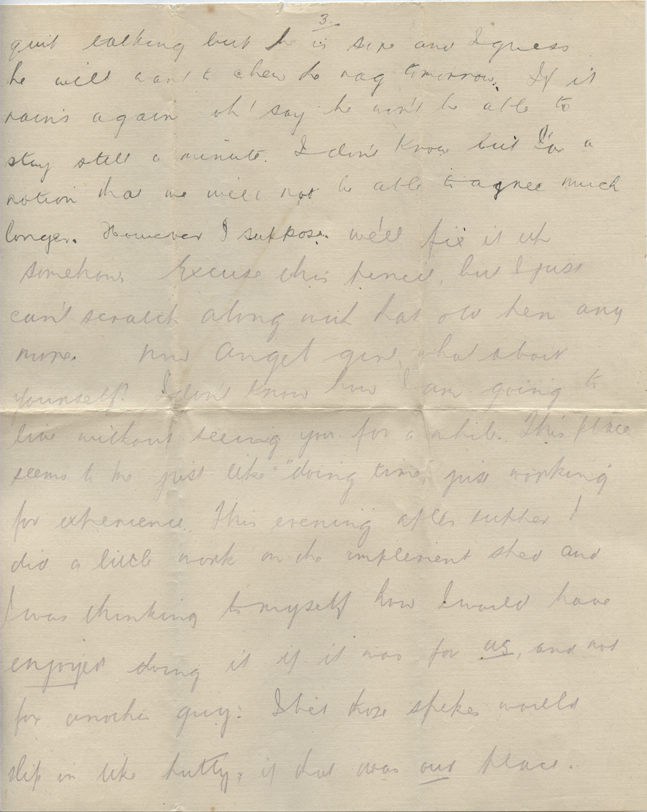 3.
quit talking but he is sore and I guess
he will want to chew the rag tomorrow. If it
rains again oh! say he won't be able to
stay still a minute. I don't know but I've a
notion that we will not be able to agree much
longer. However I suppose we'll fix it up
somehow. Excuse this pencil, but I just
can't scratch along with that old pen any
more. Now angel girl, what about
yourself? I don't know how I am going to
live without seeing you for a while. This place
seems to me just like "doing time, just working
for experience. This evening after supper I
did a little work on the implement shed and
I was thinking to myself how I would have
enjoyed doing it if it was for us, and not
for another guy. I bet those spikes would
slip in like putty, if that was our place.